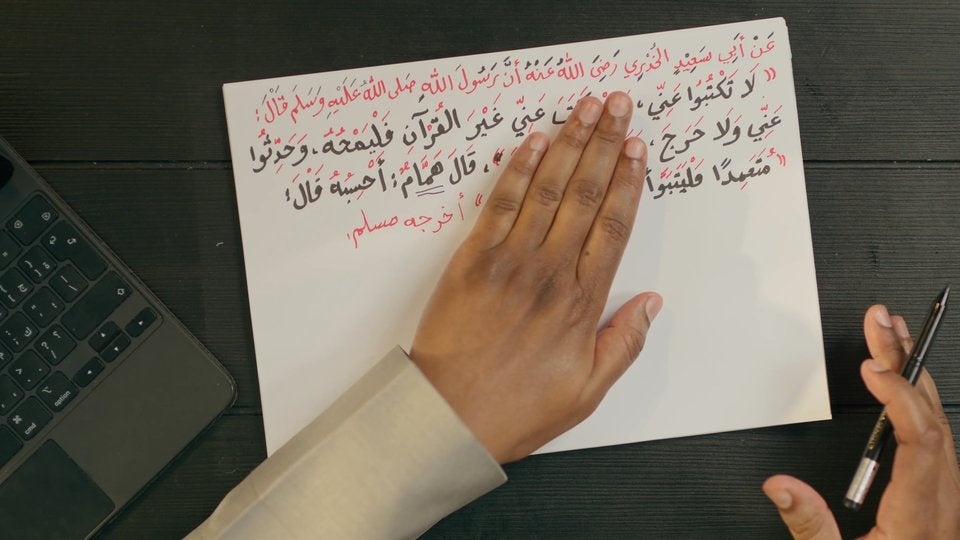 عَنْ أَبِي سَعِيْدٍ الخُدْرِي رَضِيَ اللهُ عَنْهُ أَنَّ رَسُولَ اللهِ صَلى اللهُ عَلَيْهِ وَسَلمَ قَالَ:
« لَا تَكْتُبُوا عَنِّي، عَنِّي غَيْرَ القُرْآنِ فَلْيَمْحُهُ، وَحَدِّثُوا
عَنِّي وَلَا حَرَجَ، »، قَالَ هَمَّامٌ: أَحْسِبُهُ قَالَ:
"مُتَعَمِدًا فَلْيَتَبَوَّأْ " أخرجه مسلم.
option
cmd